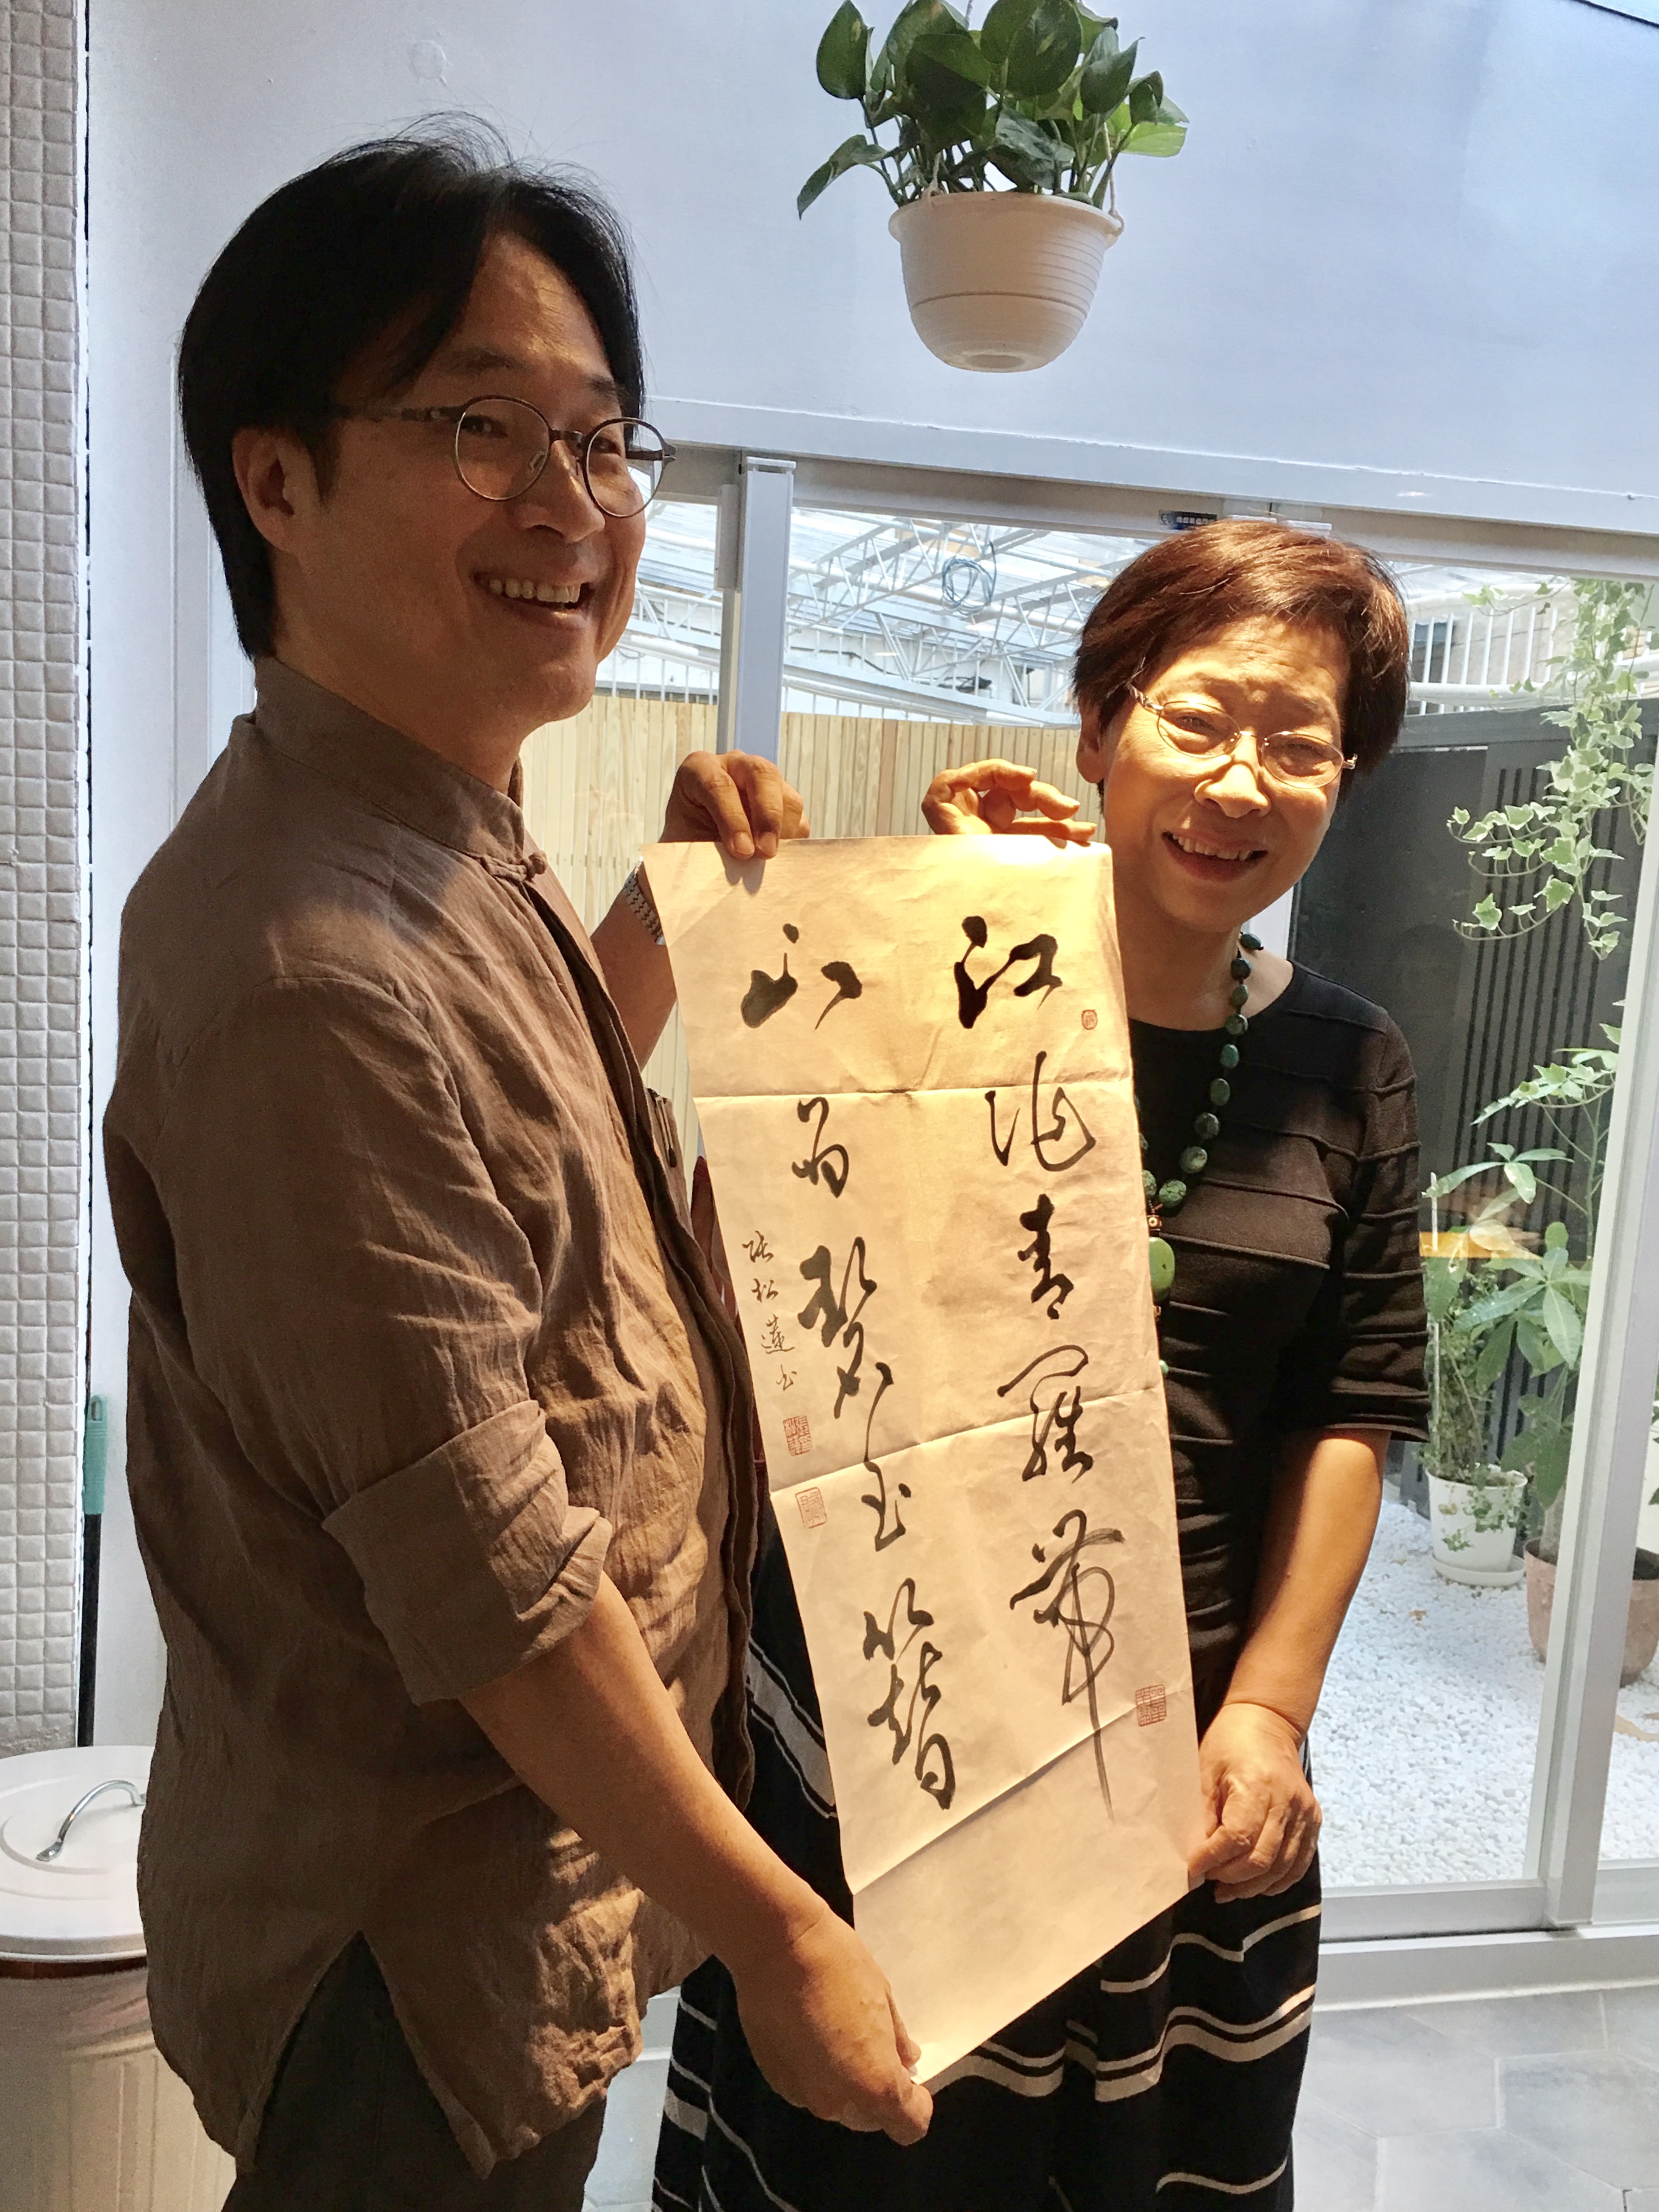 江作青羅帶
山如碧玉簪
張松蓮書